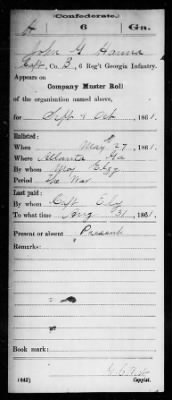 Confederate.
H 6 Ga.
John G. Hanna
Capt, Co. B, 6 Reg't Georgia Infantry.
Appears on
Company Muster Roll
of the organization named above,
for Sept & Oct, 1861.
Enlisted:
When May 27, 1861.
Where Atlanta Ga
By whom Maj
Period The War
Last paid:
By whom Capt
To what time Aug 31, 1861.
Present or absent Present
Remarks:
Book mark:
(642) Copyist.